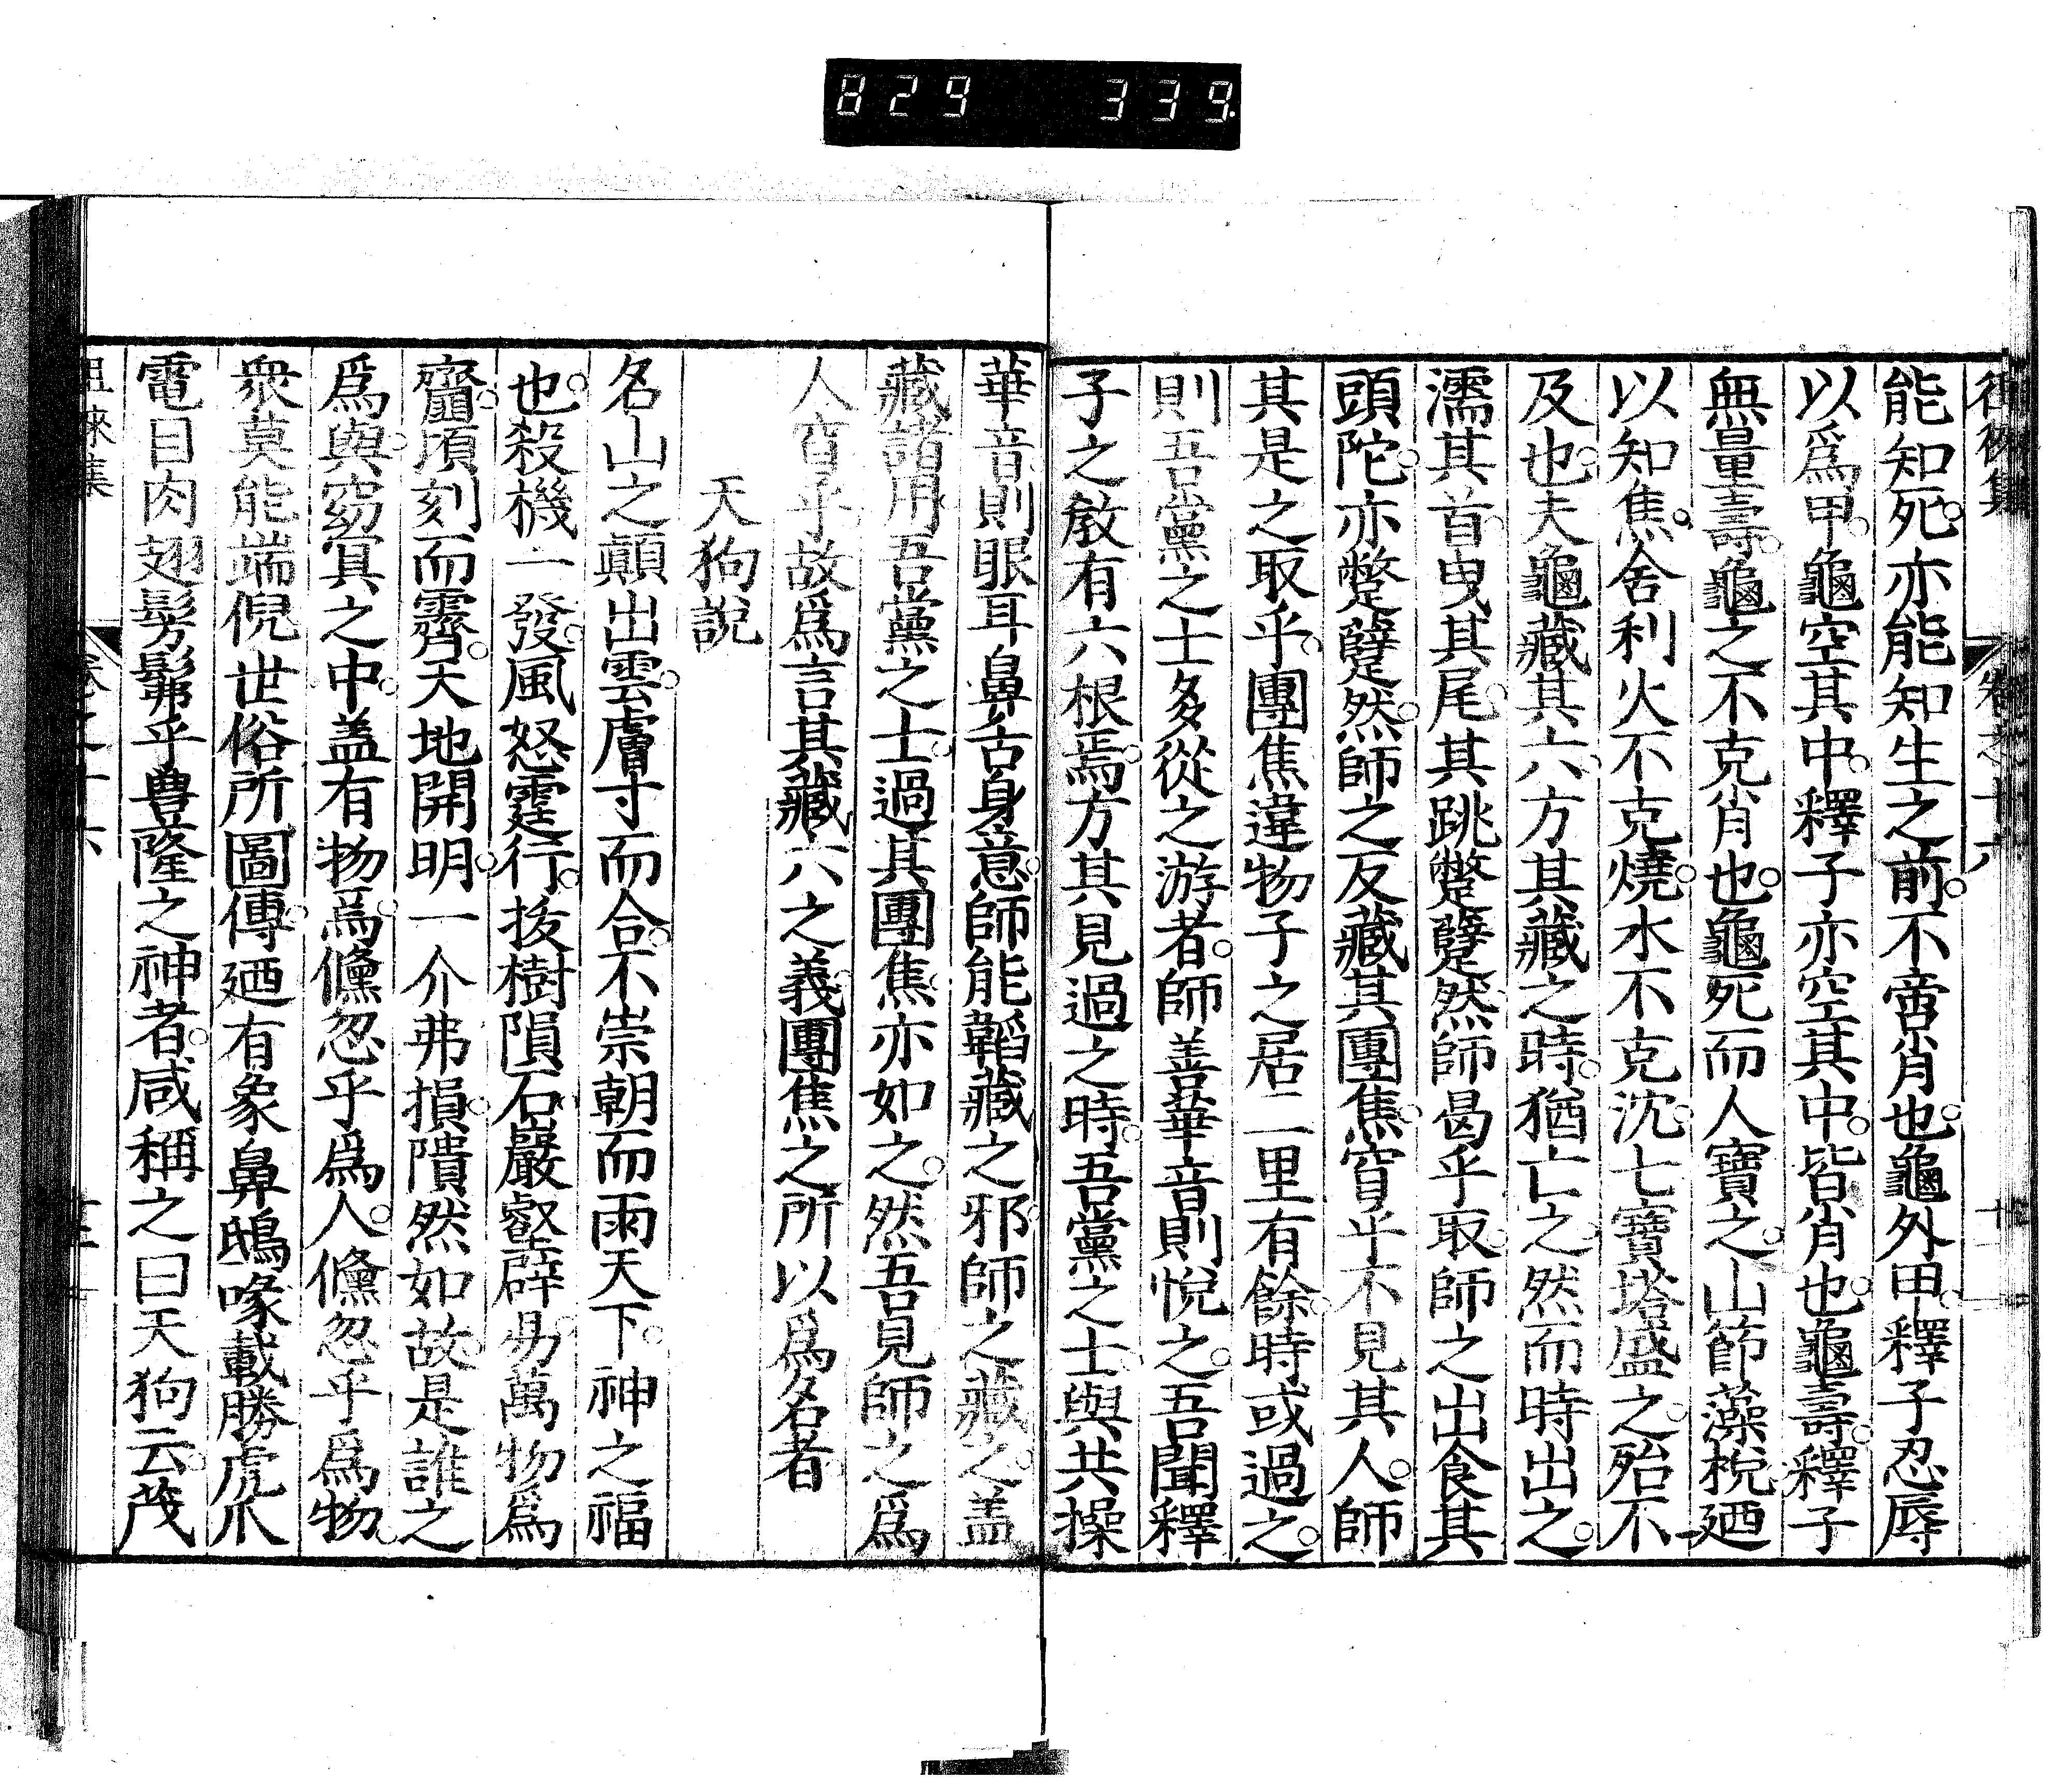 829 339.
徂徠集 卷之十六 十二
能知死。亦能知生之前。不啻肖也。龜外甲。釋子忍辱
以爲甲。龜空其中。釋子亦空其中。皆肖也。龜壽。釋子
無量壽。龜之不克肖也。龜死而人寶之。山節藻梲廼
以知焦。舍利火不克燒。水不克沈。七寶塔盛之。殆不
及也。夫龜藏其六。方其藏之時。猶亡之。然而時出之。
濡其首。曳其尾。其跳蹩躠然。師曷乎取。師之出食其
頭陀。亦蹩躠然。師之反藏其團焦。窅乎不見其人。師
其是之取乎。團焦違物子之居二里有餘。時或過之。
則吾黨之士多從之游者。師善華音則悅之。吾聞釋
子之敎有六根焉。方其見過之時。吾黨之士與共操
華音。則眼耳鼻舌身意。師能韜藏之邪。師之藏之。盖
藏諸用。吾黨之士。過其團焦。亦如之。然吾見師之爲
人窅乎。故爲言其藏六之義。團焦之所以爲名者。
天狗說
名山之顚出雲。膚寸而合。不崇朝而雨天下。神之福
也。殺機一發。風怒霆行。拔樹隕石。巖壑辟易。萬物爲
齏。頃刻而霽。天地開明。一介弗損。隤然如故。是誰之
爲與。窈冥之中。盖有物焉。儵忽乎爲人。儵忽乎爲物。
衆莫能端倪。世俗所圖傳。廼有象鼻鴟喙載勝虎爪
電目肉翅髣髴乎豊隆之神者。咸稱之曰天狗云。茂
徂徠集 卷之十六 十三